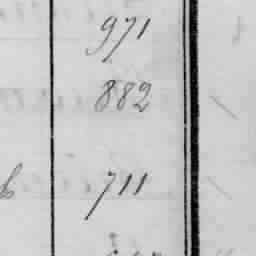 971
882
711